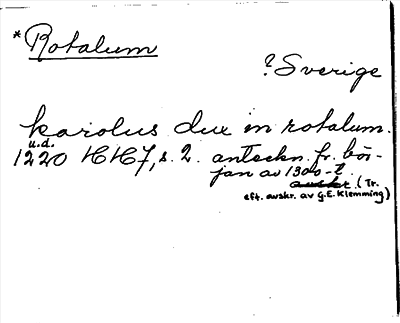 *Rotalum
?Sverige
karolus dux in rotalum.
u.d.
1220 HH7, s. 2. anteckn. fr. bör-
jan av 1300-t.
avskr. (Tr.
eft. avskr. av G.E. Klemming)